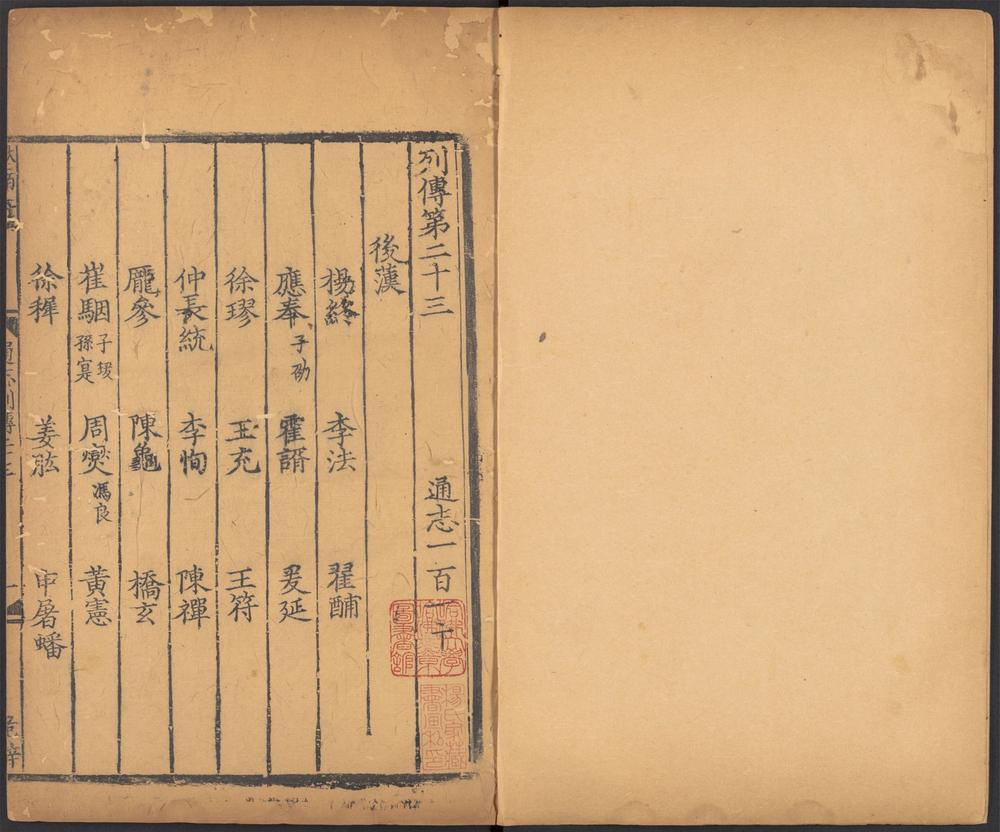 列傳第二十三 通志一百一十
後漢
楊終 李法 翟酺
應奉 子劭 霍諝 爰延
徐璆 王充 王符
仲長統 李恂 陳禪
龐參 陳龜 橋玄
崔駰 子瑗 孫寔 周燮 馮良 黃憲
徐稺 姜肱 申屠蟠